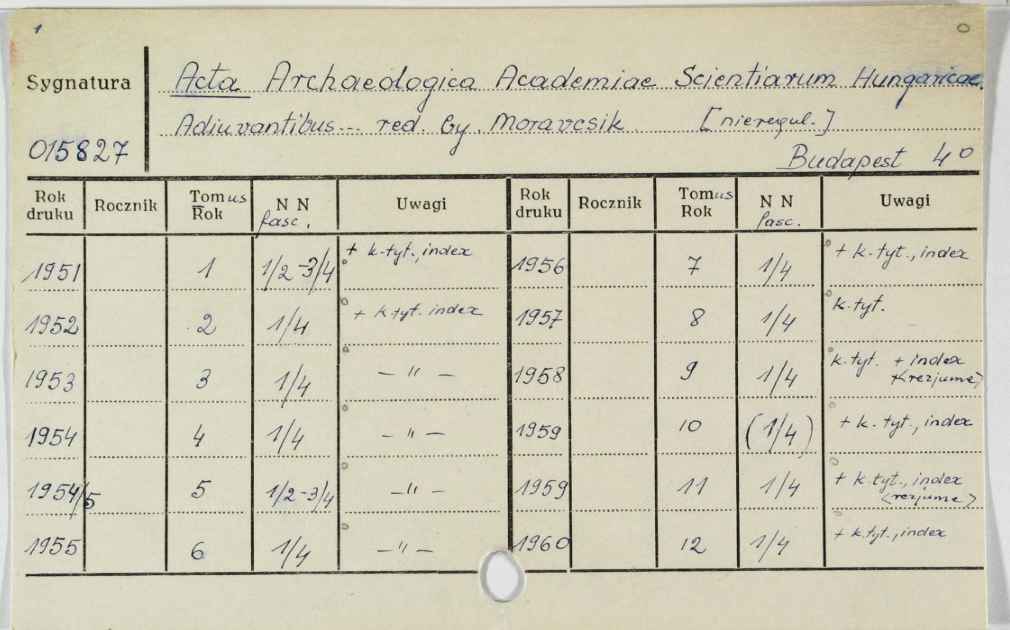 1
Sygnatura Acta Archaeologica Academiae Scientiarum Hungaricae.
Adiuvantibus... red. Gy. Moravcsik [nieregul.]
015827 Budapest 4°
Rok druku Rocznik Tomus Rok NN fasc. Uwagi Rok druku Rocznik Tomus Rok NN fasc. Uwagi
1951 1 1/2-3/4 + k.tyt., index 1956 7 1/4 + k.tyt., index
1952 2 1/4 + k.tyt. index 1957 8 1/4 k.tyt.
1953 3 1/4 — " — 1958 9 1/4 k.tyt. + index +<rezjume>
1954 4 1/4 — " — 1959 10 (1/4) + k.tyt., index
1954/5 5 1/2-3/4 — " — 1959 11 1/4 + k.tyt., index <rezjume>
1955 6 1/4 — " — 1960 12 1/4 + k.tyt., index